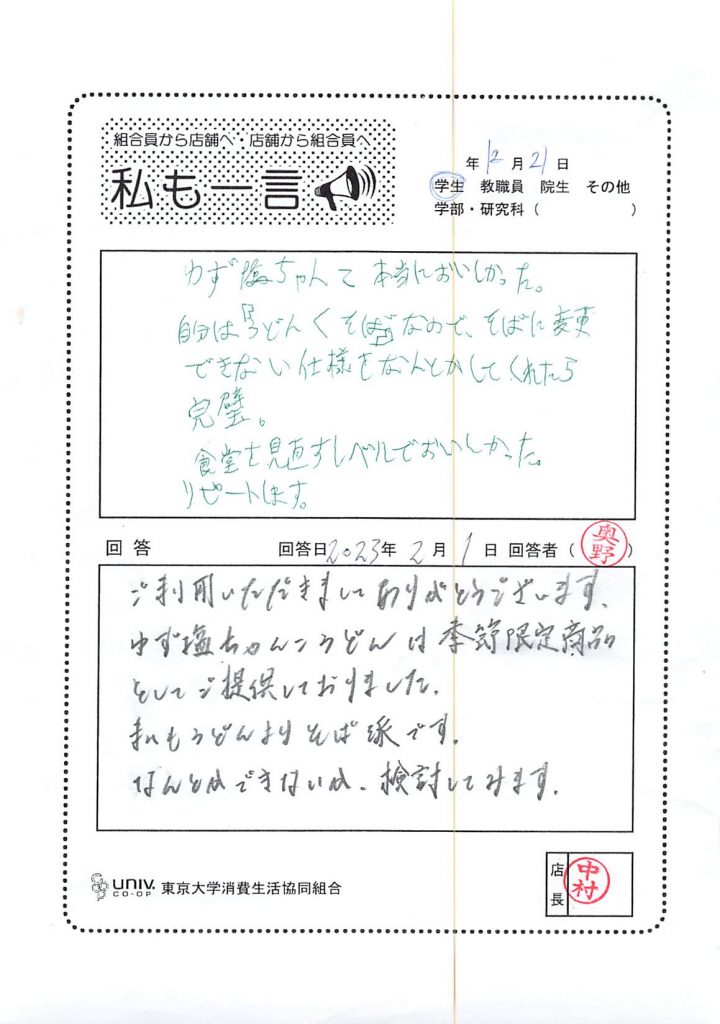 組合員から店舗へ・店舗から組合員へ
私も一言
年 12月 21日
学生 教職員 院生 その他
学部・研究科( )
ゆず塩ちゃんこ 本当においしかった。
自分は『うどん<そば』なので、そばに変更
できない仕様をなんとかしてくれたら
完璧。
食堂を見直すレベルでおいしかった。
リピートします。
回答 回答日2023年 2月 1日 回答者(奥野)
ご利用いただきましてありがとうございます。
ゆず塩ちゃんこうどんは季節限定商品
としてご提供しておりました。
私もうどんよりそば派です。
なんとかできないか、検討してみます。
UNIV. CO-OP 東京大学消費生活協同組合
店長 中村